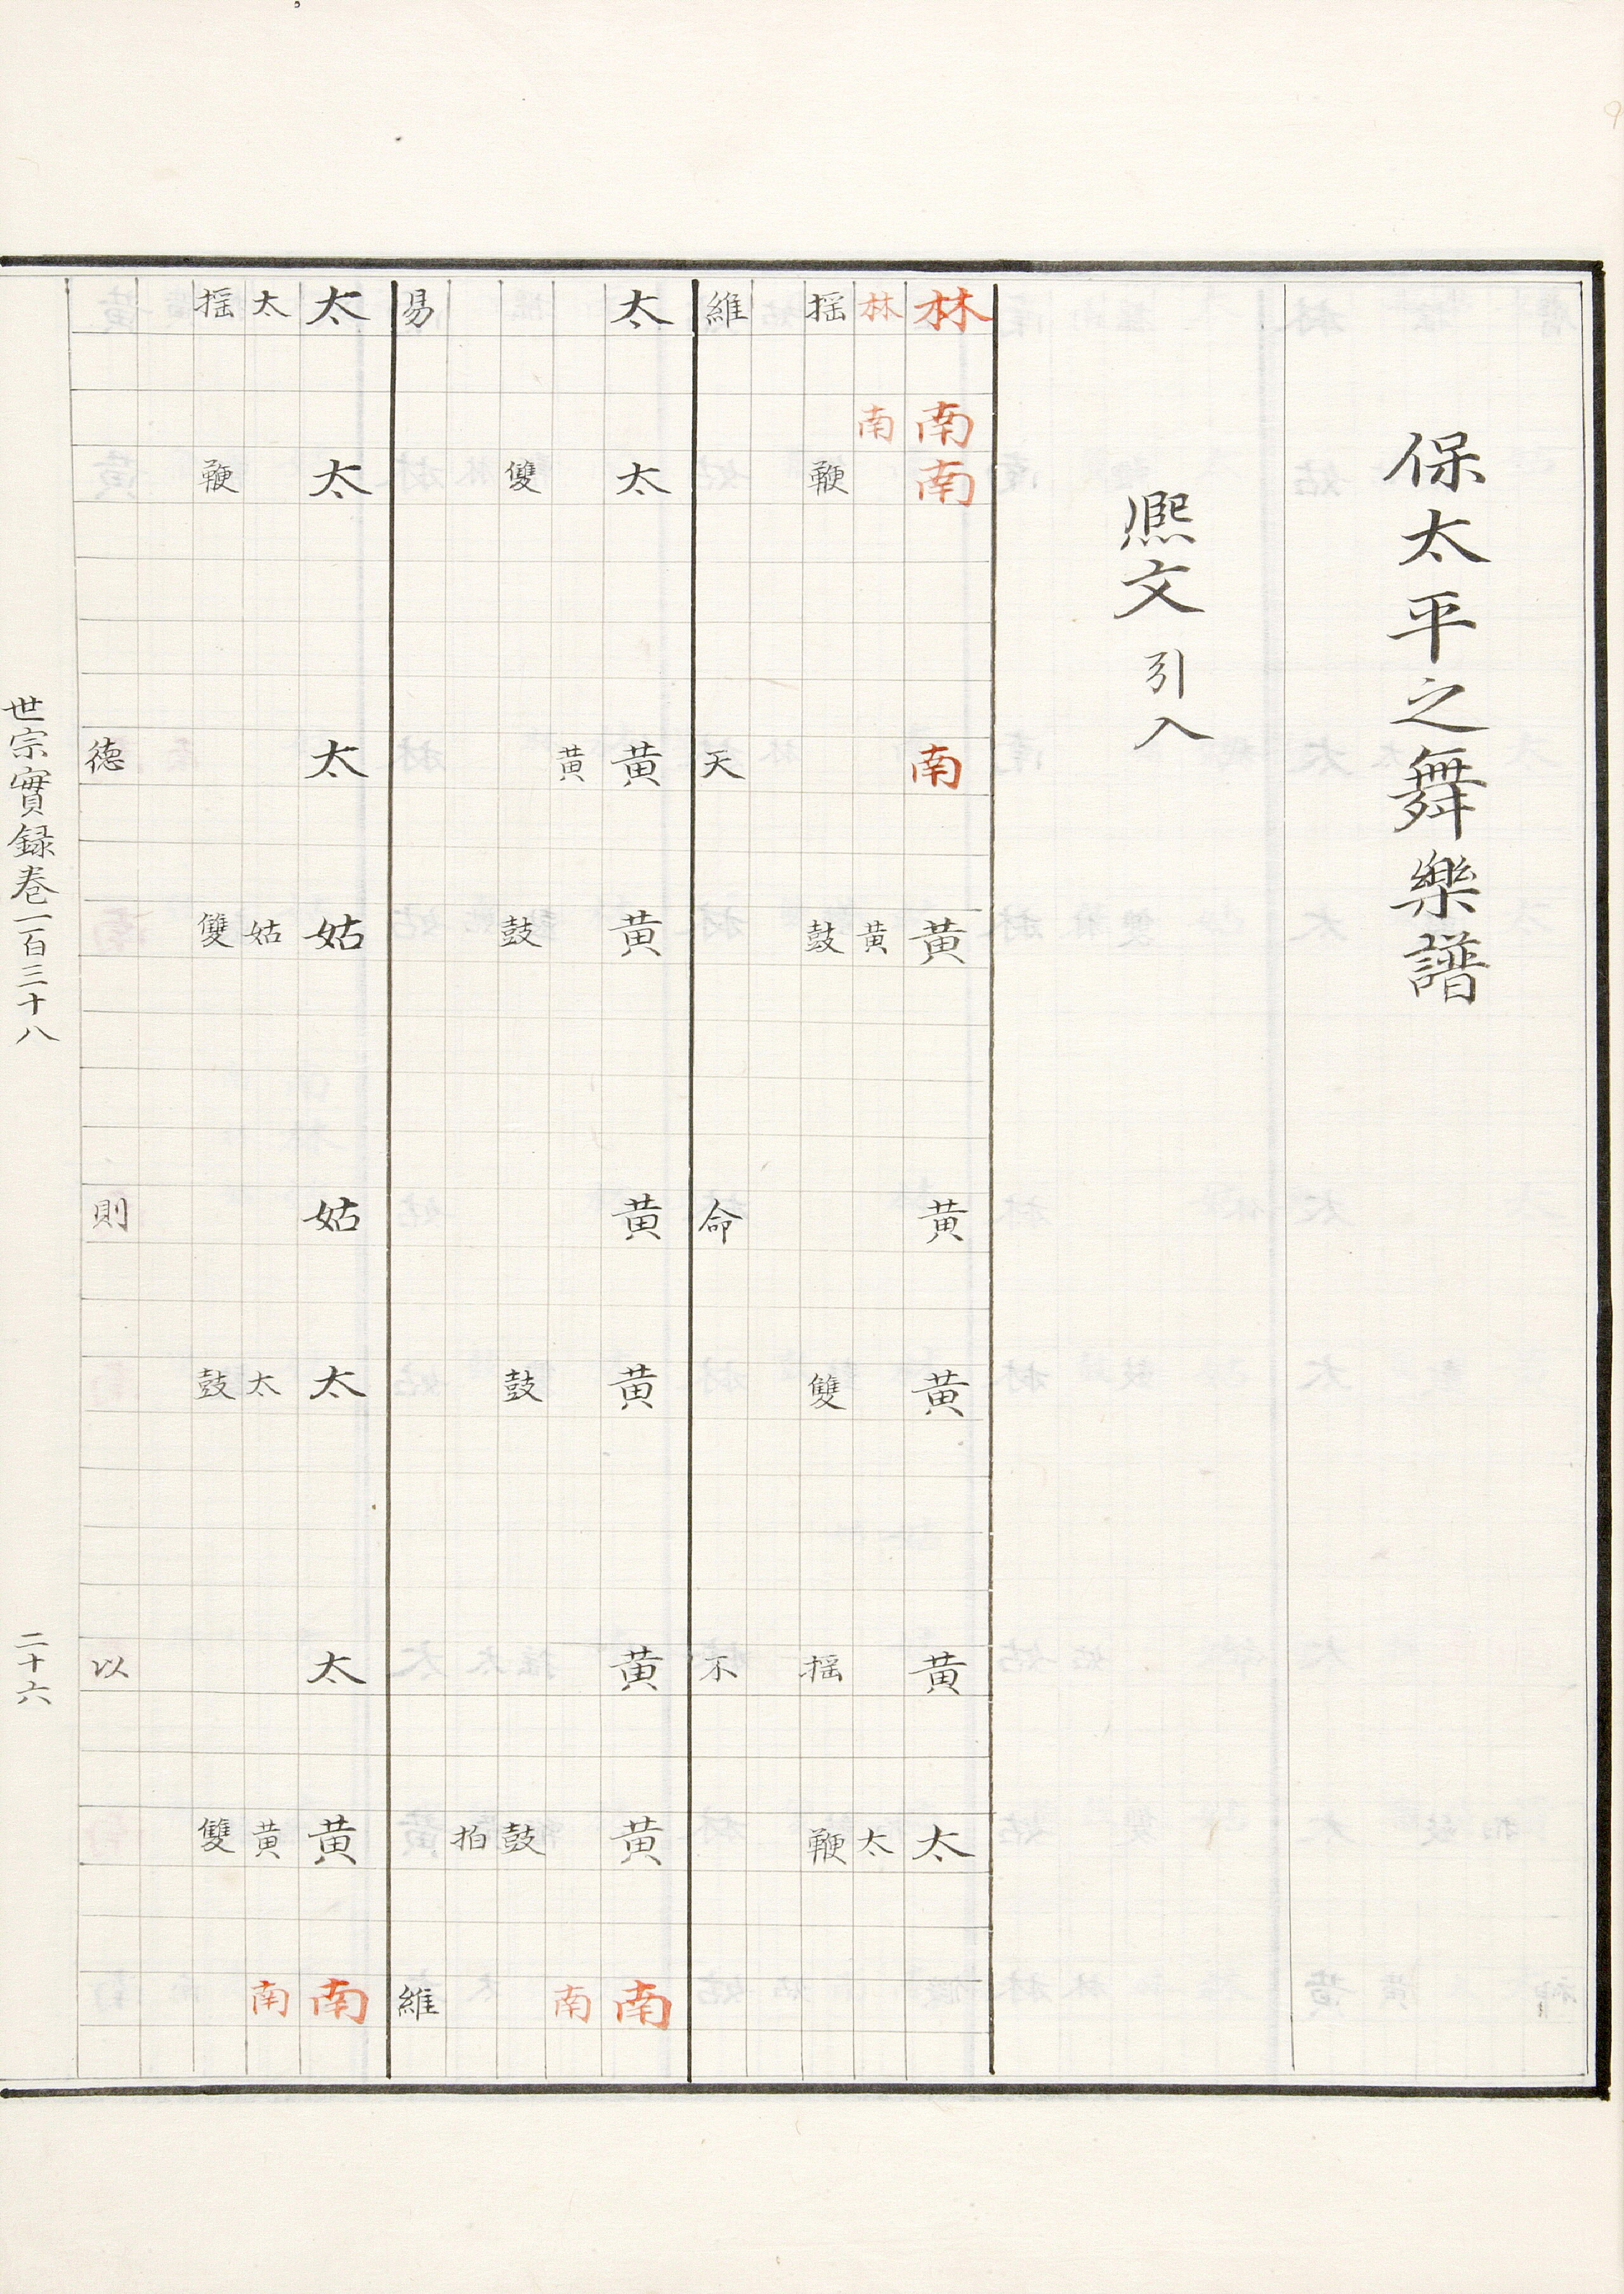 保太平之舞樂譜
熙文引入
林南南南黄黄黄黄太
林南黄太
揺鞭鼓雙揺鞭
維天命不
太太黄黄黄黄黄黄南
黄南
雙鼓鼓鼓
拍
易維
太太太姑姑太太黄南
太姑太黄南
揺鞭雙鼓雙
德則以
世宗實録卷一百三十八
二十六